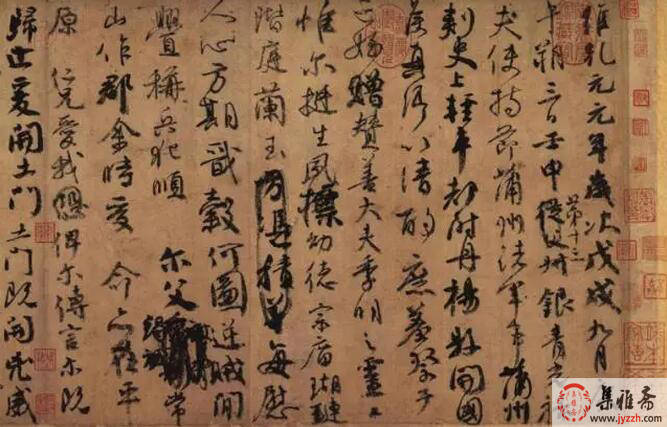 維乾元元年歲次戊戌九月
午朔三日壬申第十三從父叔銀青光祿
夫使持節蒲州諸軍事蒲州
刺史上輕車都尉丹楊縣開國
侯真卿以清酌庶羞祭于
亡姪贈贊善大夫季明之靈曰
惟爾挺生夙標幼德宗廟瑚璉
階庭蘭玉方憑積善每慰
人心方期戩穀何圖逆賊間
釁稱兵犯順爾父竭誠常
山作郡余時受命亦在平
原仁兄愛我俾爾傳言爾既
歸止爰開土門土門既開兇威
集雅斋
www.jyzzh.com